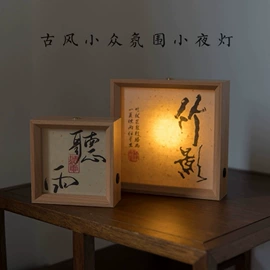 古风小众氛围小夜灯
聽雨
竹影